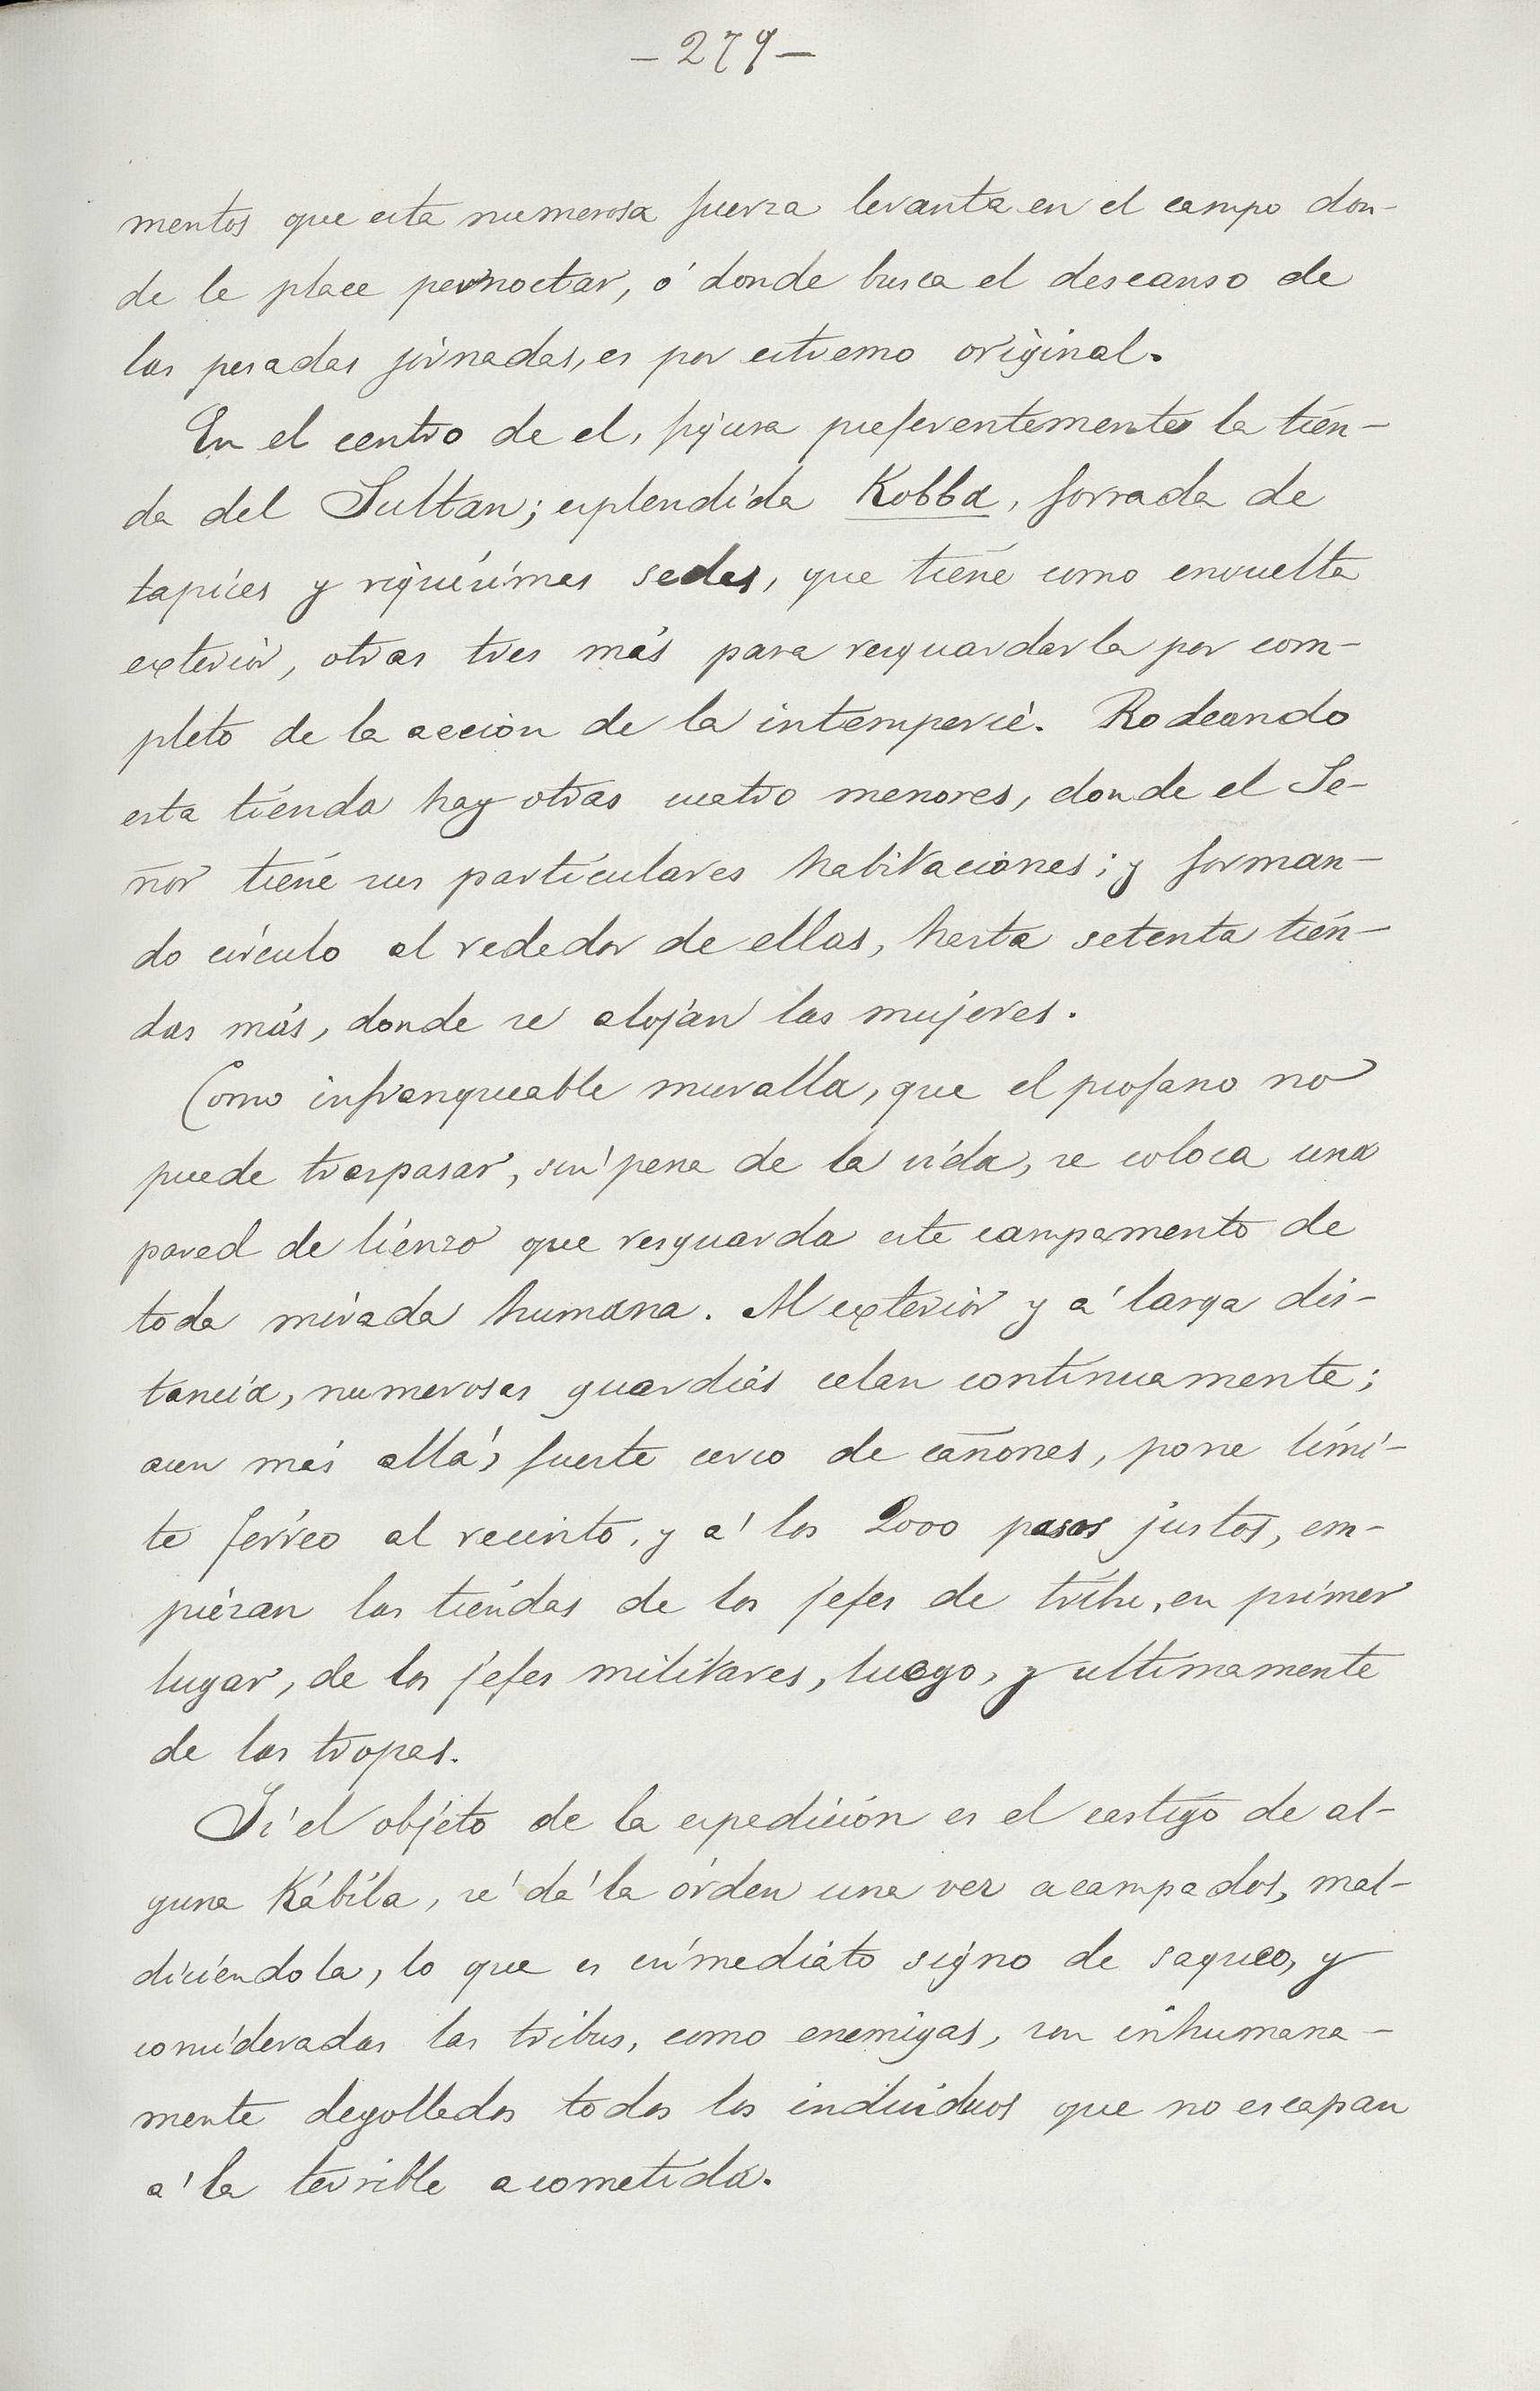 - 279 -
mentos que esta numerosa fuerza levanta en el campo don-
de le place pernoctar, ó donde busca el descanso de
las pesadas jornadas, es por estremo original.
En el centro de el, figura preferentemente la tien-
da del Sultan; esplendida Kobba, forrada de
tapices y riquísimas sedas, que tiene como envuelta
exterior, otras tres más para resguardarla por com-
pleto de la acción de la intemperie. Rodeando
esta tienda hay otras cuatro menores, donde el Se-
ñor tiene sus particulares habitaciones; y forman-
do círculo al rededor de ellas, hasta setenta tien-
das más, donde se alojan las mujeres.
Como infranqueable muralla, que el profano no
puede traspasar, sin pena de la vida, se coloca una
pared de lienzo que resguarda este campamento de
toda mirada humana. Al exterior y á larga dis-
tancia, numerosas guardias celan continuamente;
aun más allá, fuerte cerco de cañones, pone lími-
te ferreo al recinto, y á los 2000 pasos justos, em-
piezan las tiendas de los jefes de tribu, en primer
lugar, de los jefes militares, luego, y ultimamente
de las tropas.
Si el objeto de la espedición es el castigo de al-
guna Kábila, se dá la órden una vez acampados, mal-
diciéndola, lo que es inmediato signo de saqueo, y
consideradas las tribus, como enemigas, son inhumana-
mente degollados todos los individuos que no escapan
á la terrible acometida.